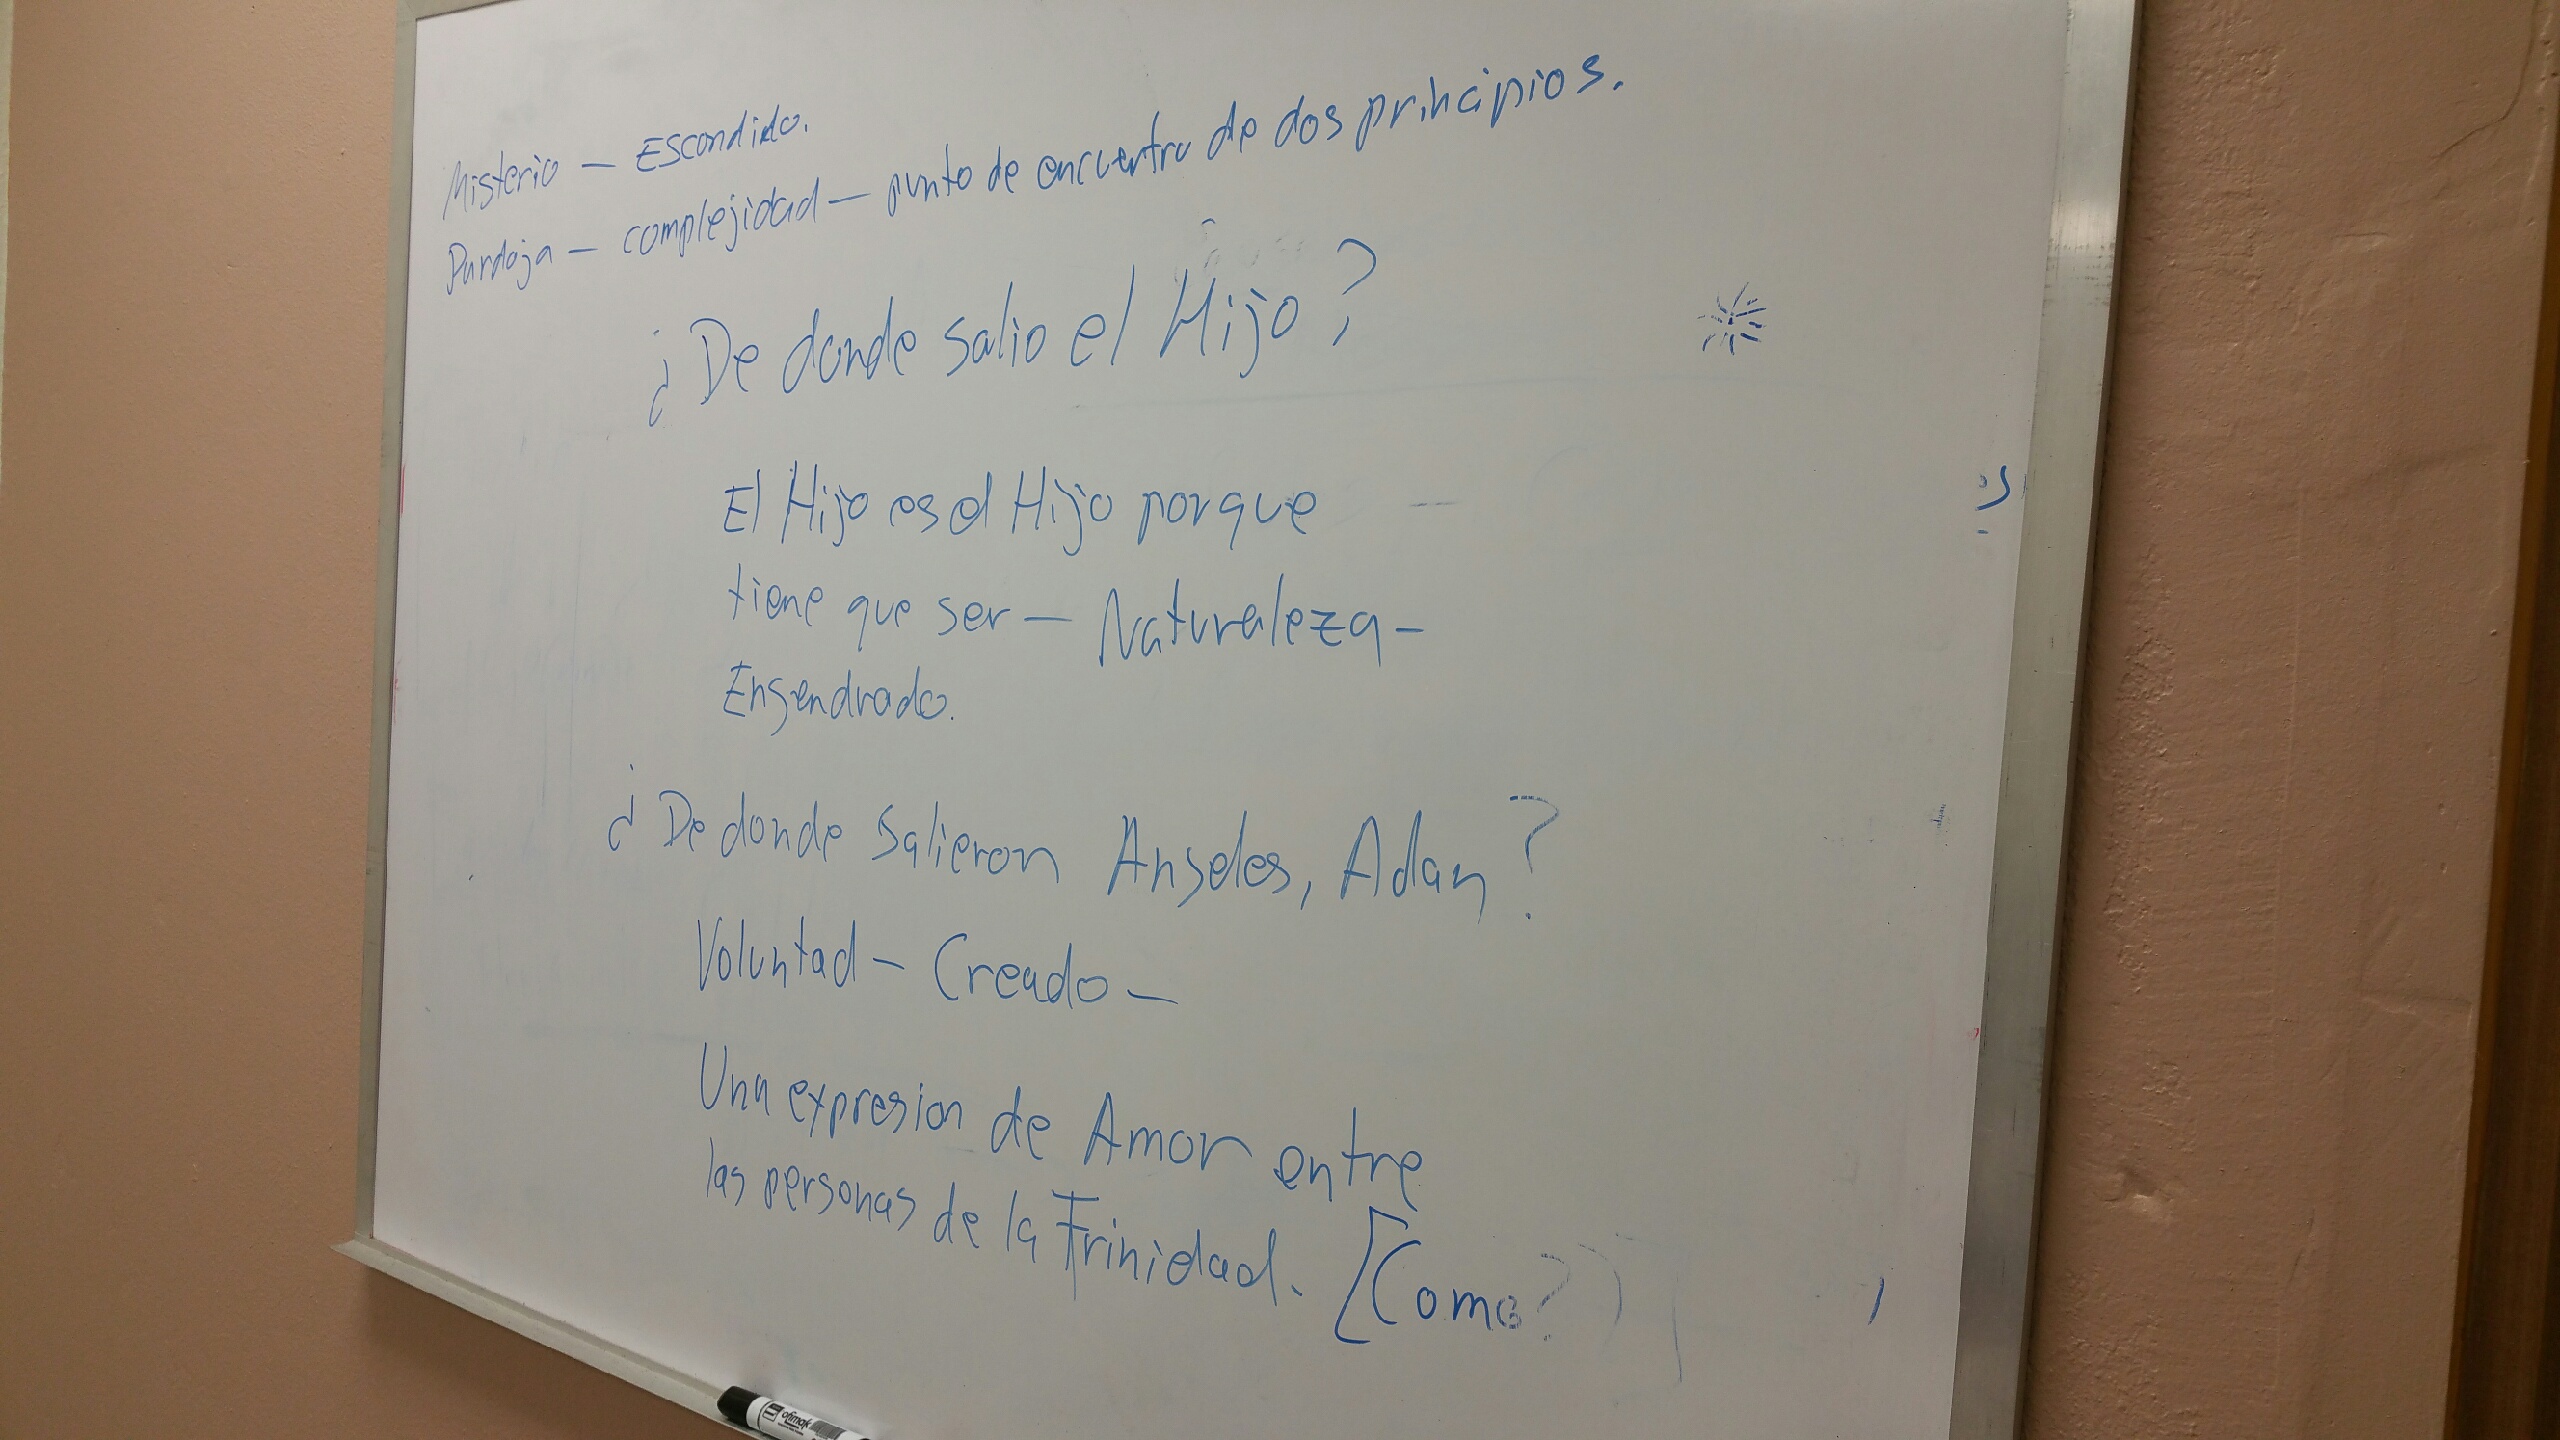 Misterio — Escondido.
Pardoja — complejidad — punto de encuentro de dos principios.
¿De donde salio el Hijo?
El Hijo es el Hijo porque
tiene que ser — Naturaleza —
Engendrado.
¿De donde salieron Angeles, Adan?
Voluntad — Creado —
Una expresion de Amor entre
las personas de la Trinidad. [Como?)
ofimak